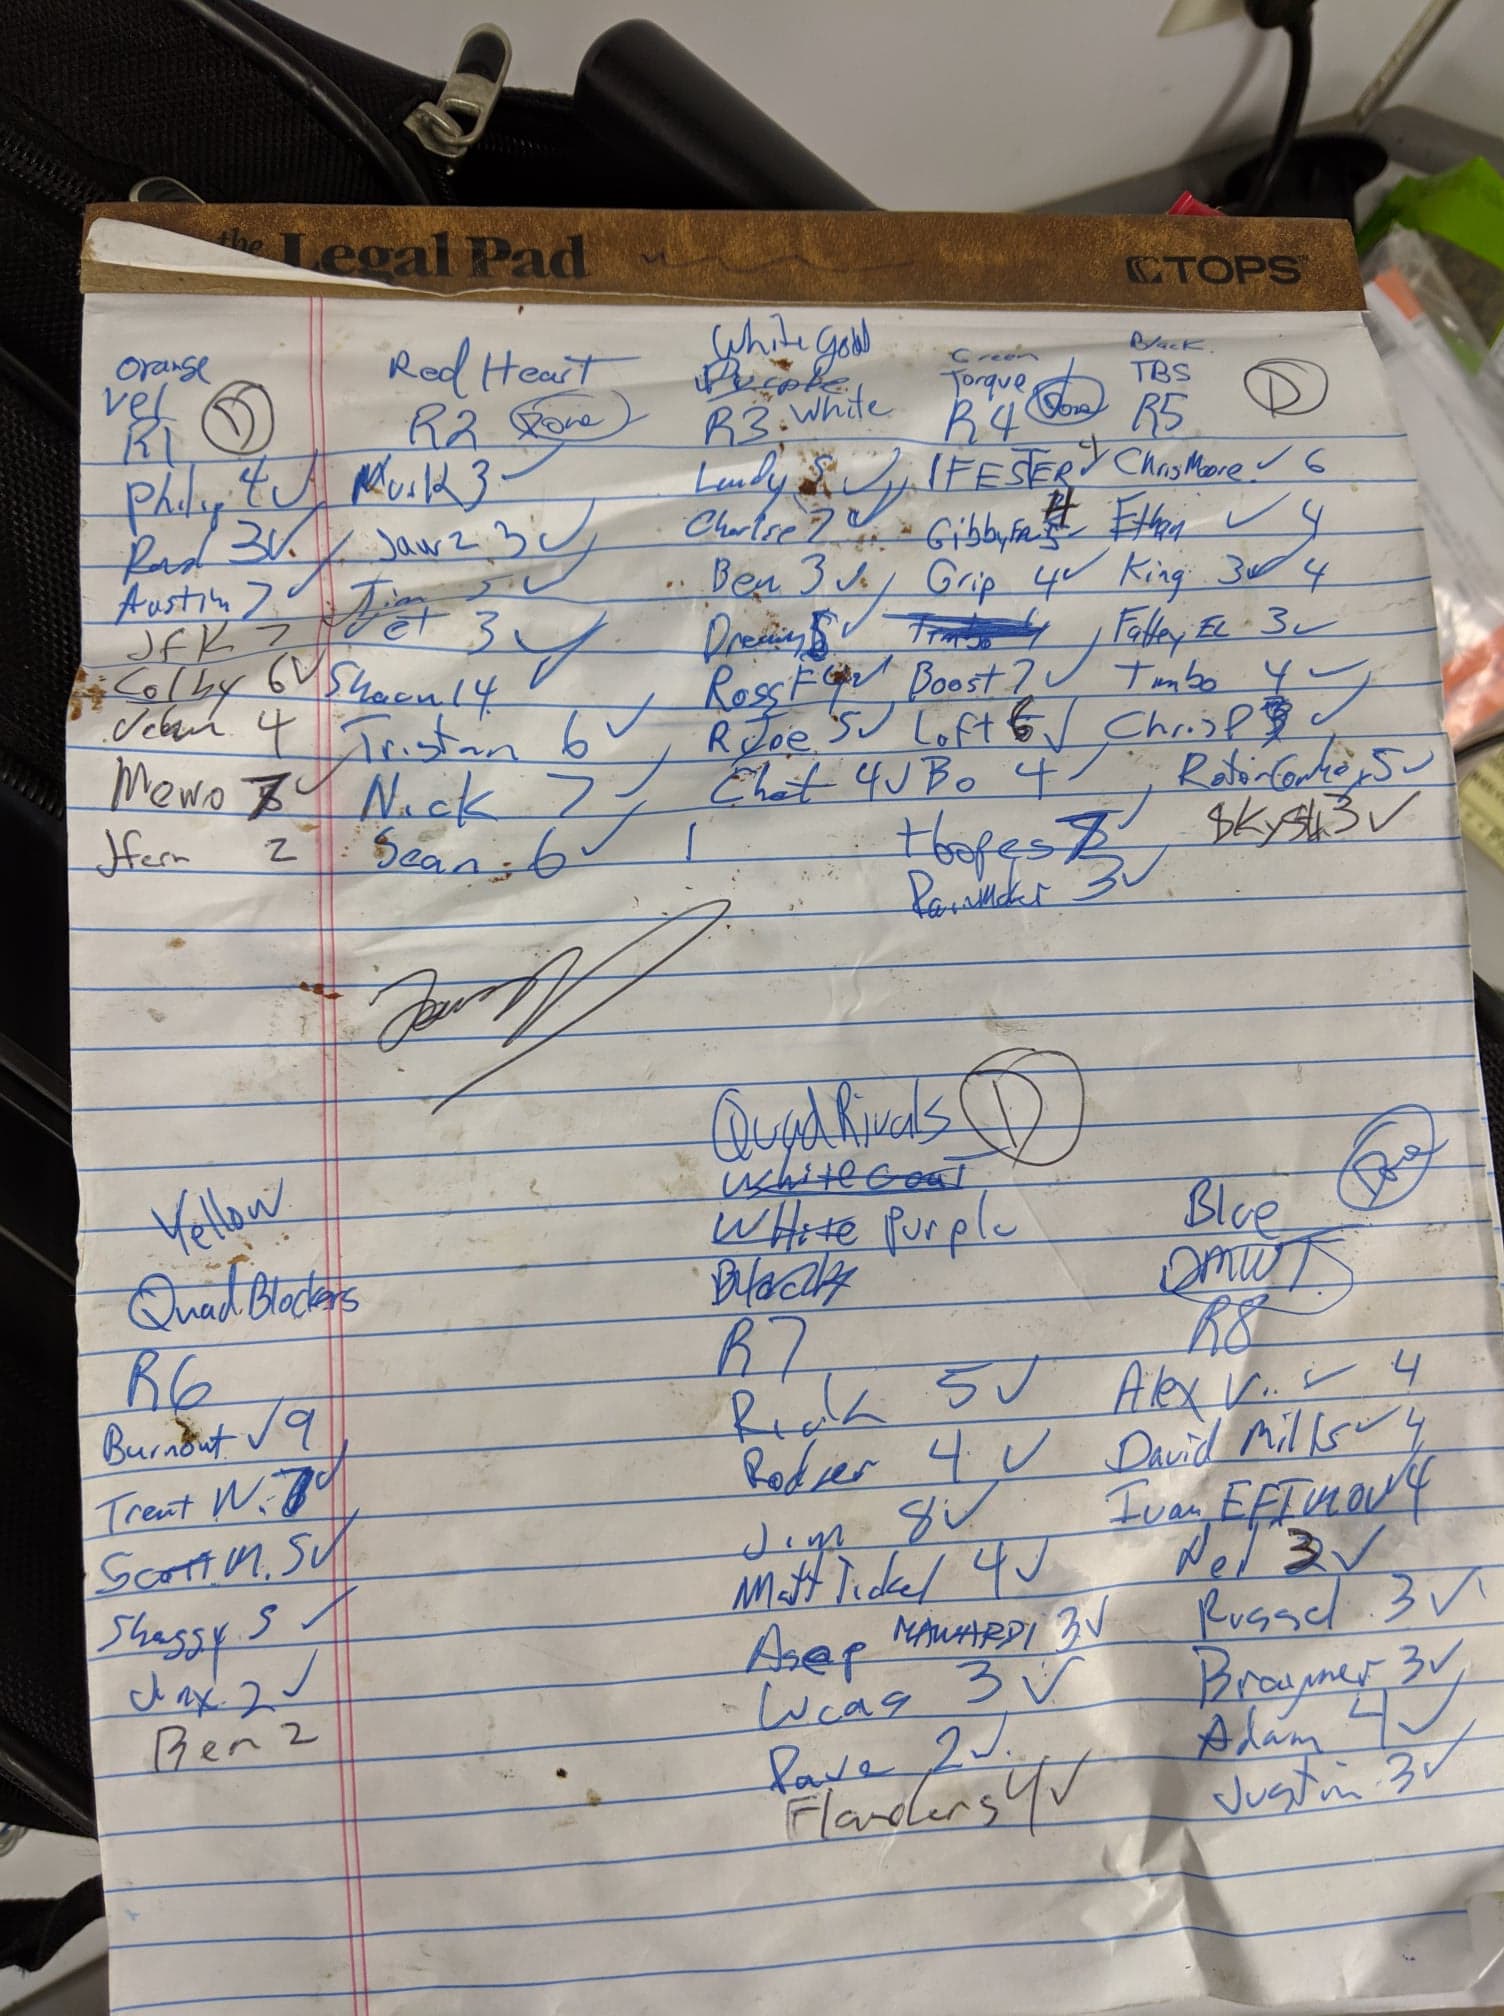 the Legal Pad TOPS
Orange
Vel
R1 D
Philip 4 ✓
Rad 3 ✓
Austin 7
JFK 7
Colby 6 ✓
4
Mewo ✓
Jfern 2
Red Heart
R2 Done
Musk 3 ✓
Jawz 3 ✓
Tim 5 ✓
Jet 3 ✓
Shaun 14 ✓
Tristan 6 ✓
Nick 7 ✓
Sean 6 ✓
White Gold
Purple
R3 White
✓
7 ✓
Ben 3 ✓
✓
Ross F ✓
R Joe 5 ✓
Chat 4 ✓
1
Green
Torque
R4 Done
IFESTER 4 ✓
Gibby
Grip 4 ✓
Timbo
Boost 7 ✓
Loft 6 ✓
Bo 4 ✓
Hoopes ✓
3 ✓
Black
TBS
R5 D
Chris Moore ✓ 6
Ethan ✓ 4
King 3 ✓ 4
3 ✓
Timbo 4 ✓
Chris P ✓
5 ✓
3 ✓
Yellow
Quad Blockers
R6
Burnout ✓ 9
Trent W. ✓
Scott M. 5 ✓
Shaggy 5 ✓
Jinx 2 ✓
Ben 2
Quad Rivals D
White Goat
White Purple
Black
R7
5 ✓
4 ✓
Jim 8 ✓
Matt Tickel 4 ✓
Asep MAWARDI 3 ✓
Lucas 3 ✓
2 ✓
Flanders 4 ✓
Blue Done
DMWT
R8
Alex V.. ✓ 4
David Mills ✓ 4
Ivan EFIMOV 4
✓
Russel 3 ✓
Braymer 3 ✓
Adam 4 ✓
Justin 3 ✓